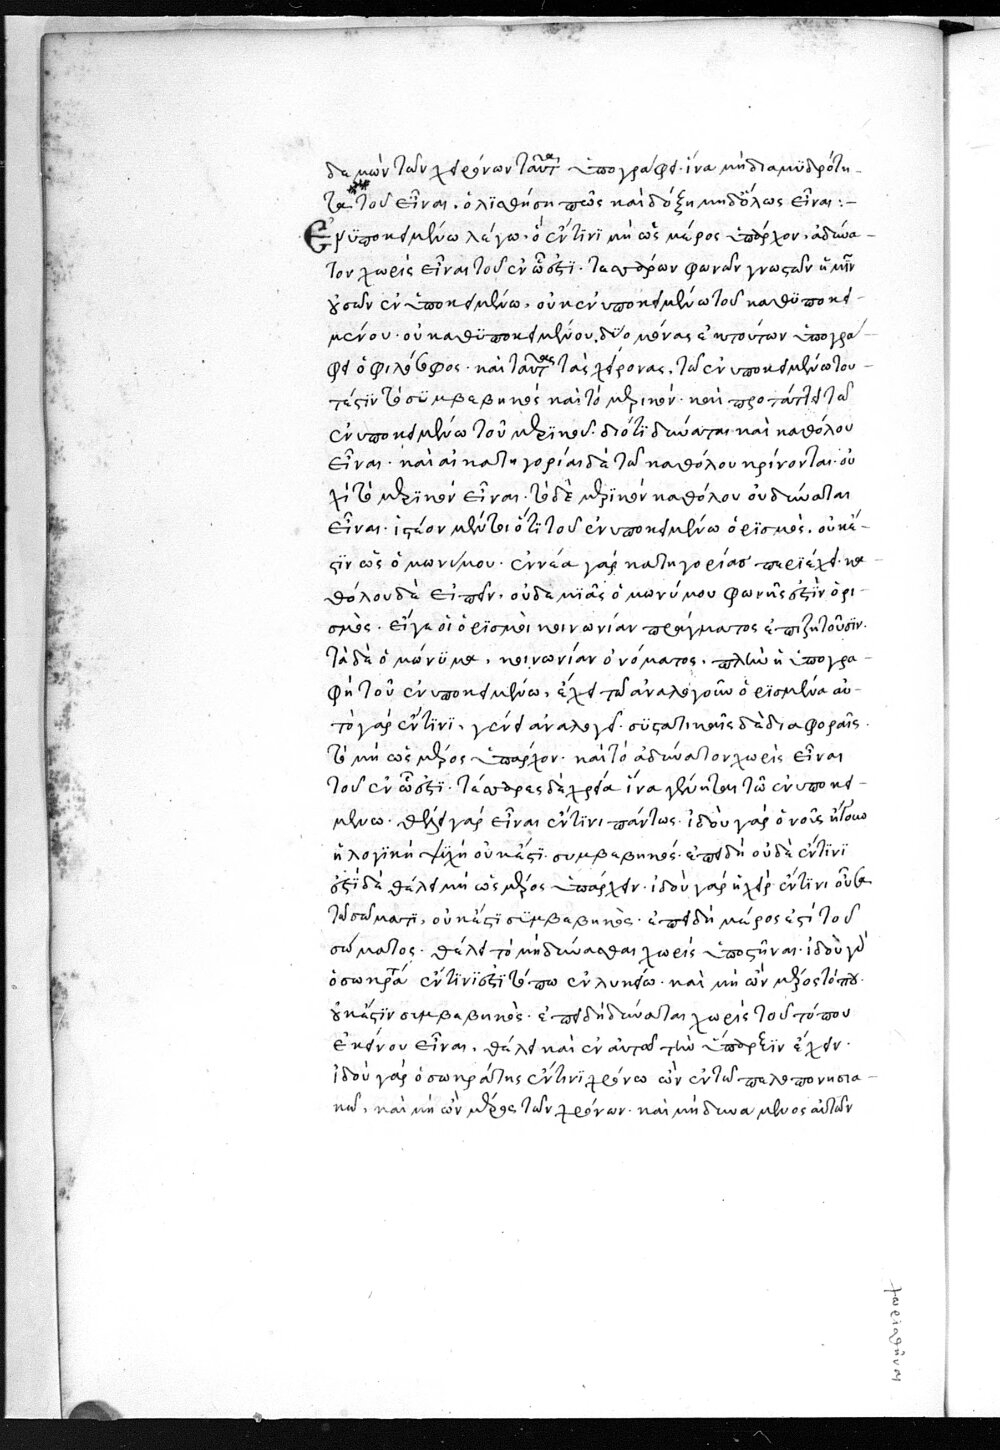 δε μιῶν τῶν χειρόνων ταύτας ὑπογράφει· ἵνα μὴ δι' ἀμυδρότη-
τα τοῦ εἶναι, ὀλισθήσῃ πως καὶ δόξῃ μηδ' ὅλως εἶναι:-
Ἐν ὑποκειμένω λέγω, ὃ ἔν τινι μὴ ὡς μέρος ὑπάρχον, ἀδύνα-
τον χωρὶς εἶναι τοῦ ἐν ᾧ ἐστι· τεσσάρων φωνῶν
οὐσῶν ἐν ὑποκειμένω, οὐκ ἐν ὑποκειμένω τοῦ καθ' ὑποκει-
μένου· οὐ καθ' ὑποκειμένου, δύο μόνας ἐκ τούτων ὑπογρά-
φει ὁ φιλόσοφος· καὶ ταύτας τὰς χείρονας, τῶ ἐν ὑποκειμένω του-
τέστιν τὸ συμβεβηκὸς καὶ τὸ μερικόν· καὶ προτάττει τῶ
ἐν ὑποκειμένω τοῦ μερικοῦ· διότι δύναται καὶ καθόλου
εἶναι· καὶ αἱ κατηγορίαι δὲ τῶ καθόλου κρίνονται· οὐ
χὶ τὸ μερικὸν εἶναι· τὸ δὲ μερικὸν καθόλου οὐ δύναται
εἶναι· ἰστέον μέντοι ὅτι τοῦ ἐν ὑποκειμένω ὁρισμὸς, οὐκ ἔ-
στιν ὡς ὁμωνύμου· ἐννέα γὰρ κατηγορίας περιέχει· κα
θόλου δὲ εἰπεῖν, οὐδεμιᾶς ὁμωνύμου φωνῆς ἐστὶν ὁρι-
σμός· εἴγε οἱ ὁρισμοὶ κοινωνίαν πράγματος ἐπιζητοῦσιν·
τὰ δὲ ὁμώνυμα, κοινωνίαν ὀνόματος, πλὴν ἡ ὑπογρα-
φὴ τοῦ ἐν ὑποκειμένω, ἔχει τῶ ἀναλογοῦν ὁρισμῶ αὐ-
τὸ γὰρ ἔν τινι, γένει ἀναλογεῖ· συστατικαῖς δὲ διαφοραῖς·
τὸ μὴ ὡς μέρος ὑπάρχον· καὶ τὸ ἀδύνατον χωρὶς εἶναι
τοῦ ἐν ᾧ ἐστι· τέσσαρες δὲ χρεία ἵνα γένηται τῶ ἐν ὑποκει-
μένω· θέλει γὰρ εἶναι ἔν τινι πάντως· ἰδοὺ γὰρ ὁ νοῦς ἤτοι
ἡ λογικὴ ψυχὴ οὐκ ἔστι συμβεβηκός· ἐπειδὴ οὐδὲ ἔν τινι
ἐστί δὲ θέλει μὴ ὡς μέρος ὑπάρχειν· ἰδοὺ γὰρ ἡ χεὶρ ἔν τινι οὖσα
τῶ σώματι, οὐκ ἔστι συμβεβηκός· ἐπειδὴ μέρος ἐστὶ τοῦ
σώματος· θέλει τὸ μὴ δύνασθαι χωρὶς ὑποστῆναι· ἰδοὺ γὰρ
ὁ σωκράτης ἔν τινι ἐστὶ τόπω ἐν λυκείω· καὶ μὴ ὢν μέρος τόπου·
οὐκ ἔστιν συμβεβηκός· ἐπειδὴ δύναται χωρὶς τοῦ τόπου
ἐκείνου εἶναι· θέλει καὶ ἐν αὐτῶ τὴν ὕπαρξιν ἔχειν·
ἰδοὺ γὰρ ὁ σωκράτης ἔν τινι χρόνω ὢν ἐν τῶ πελοπονησια-
κῶ, καὶ μὴ ὢν μέρος τῶν χρόνων· καὶ μὴ δυνάμενος αὐτῶν
χωρισθῆναι